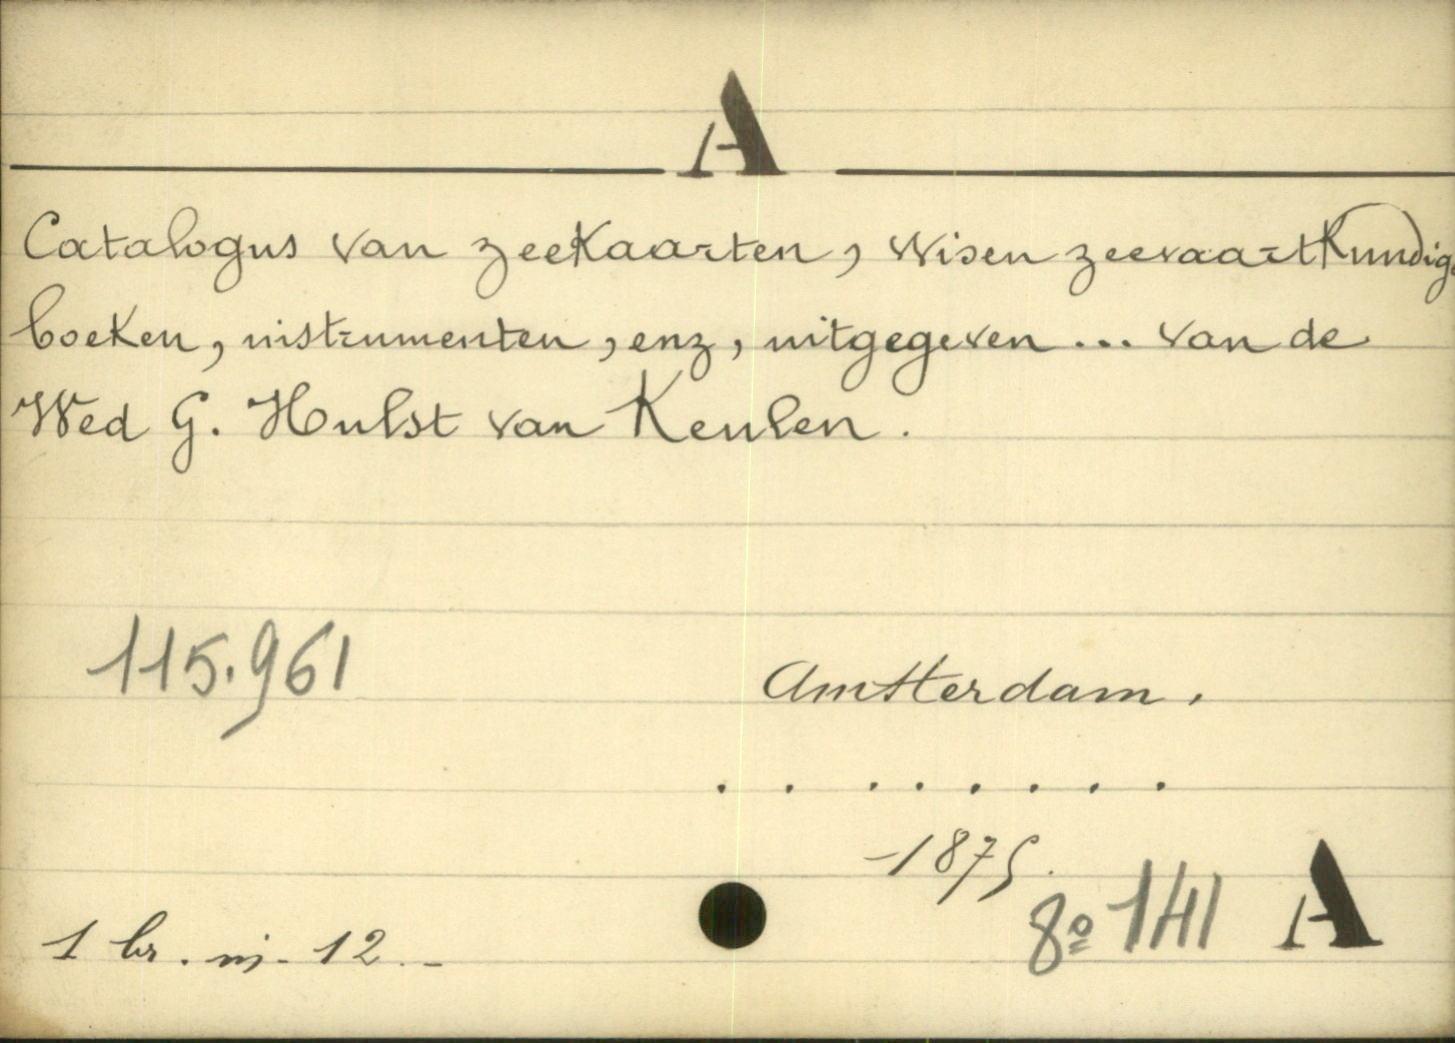 A
Catalogus van zeekaarten, wisen zeevaartkundige
boeken, instrumenten, enz, uitgegeven ... van de
Wed G. Hulst van Keulen.
115.961
Amsterdam.
. . . . . . . .
1875.
8º 141 A
1 br. in-12.-